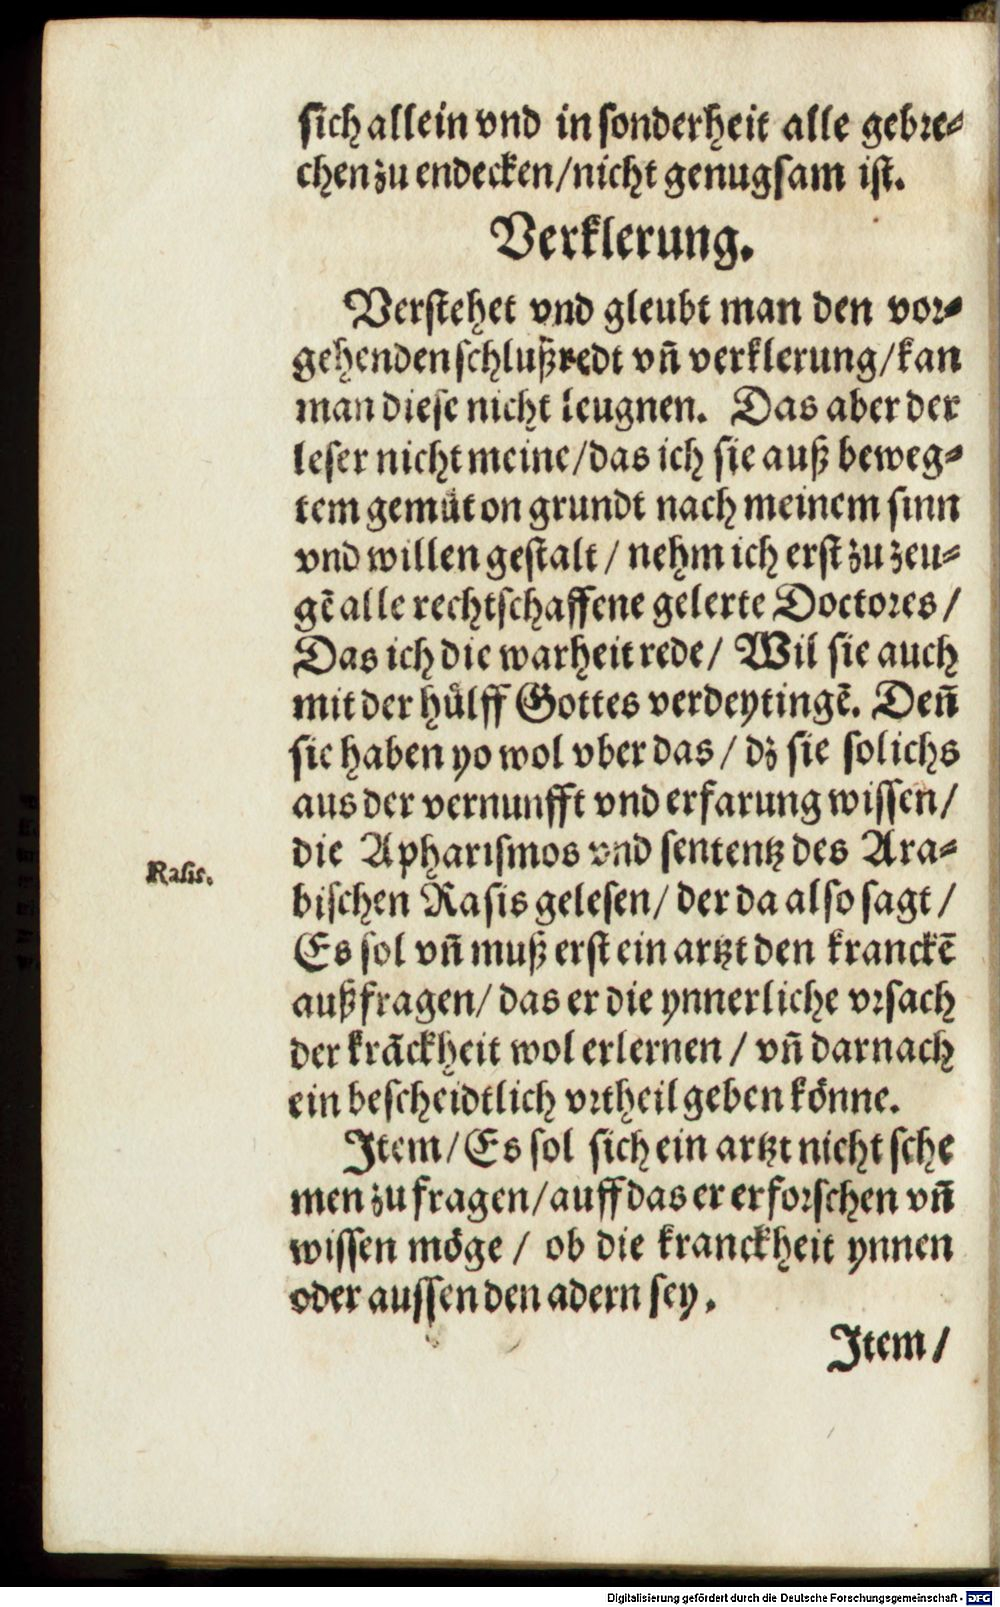 sich allein vnd in sonderheit alle gebre-
chen zu endecken/nicht genugsam ist.
Verklerung.
Verstehet vnd gleubt man den vor-
gehenden schlußredt vn̄ verklerung/kan
man diese nicht leugnen. Das aber der
leser nicht meine/das ich sie auß beweg-
tem gemüt on grundt nach meinem sinn
vnd willen gestalt / nehm ich erst zu zeu-
gē alle rechtschaffene gelerte Doctores /
Das ich die warheit rede/ Wil sie auch
mit der hülff Gottes verdeytingē. Den̄
sie haben yo wol vber das / dz sie solichs
aus der vernunfft vnd erfarung wissen/
die Apharismos vnd sententz des Ara-
Rasis.
bischen Rasis gelesen/ der da also sagt /
Es sol vn̄ muß erst ein artzt den kranckē
außfragen/ das er die ynnerliche vrsach
der krāckheit wol erlernen / vn̄ darnach
ein bescheidtlich vrtheil geben könne.
Item/Es sol sich ein artzt nicht sche
men zu fragen/auff das er erforschen vn̄
wissen möge / ob die kranckheit ynnen
oder aussen den adern sey.
Item/
Digitalisierung gefördert durch die Deutsche Forschungsgemeinschaft - DFG